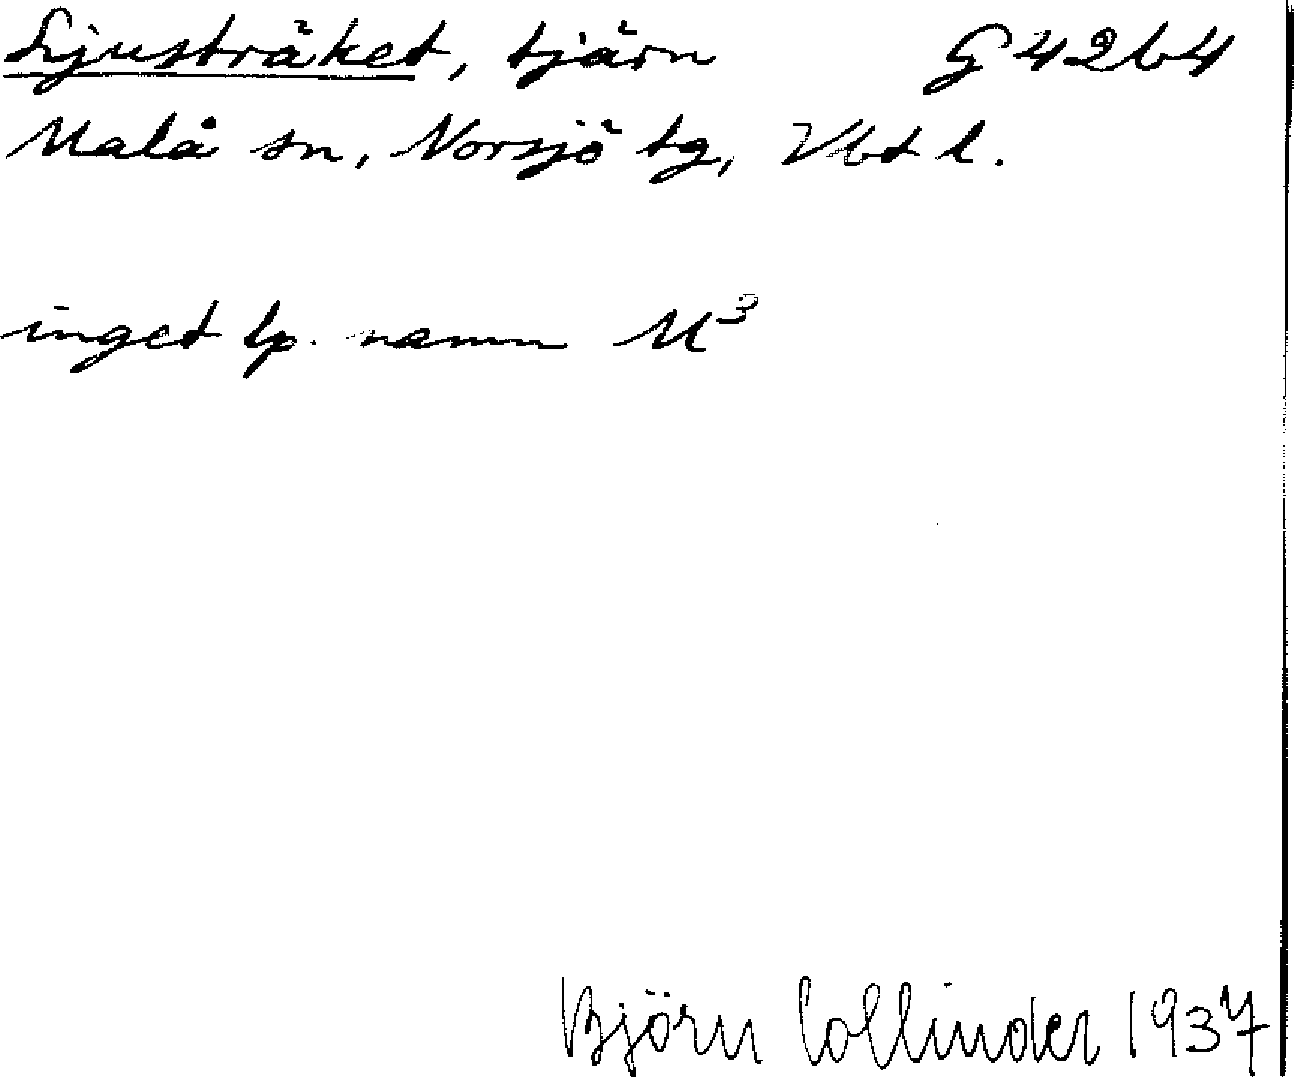 Ljusträket, tjärn G 42b4
Malå sn, Norsjö tg, Vbt l.
inget lp. namn M³
Björn Collinder 1937